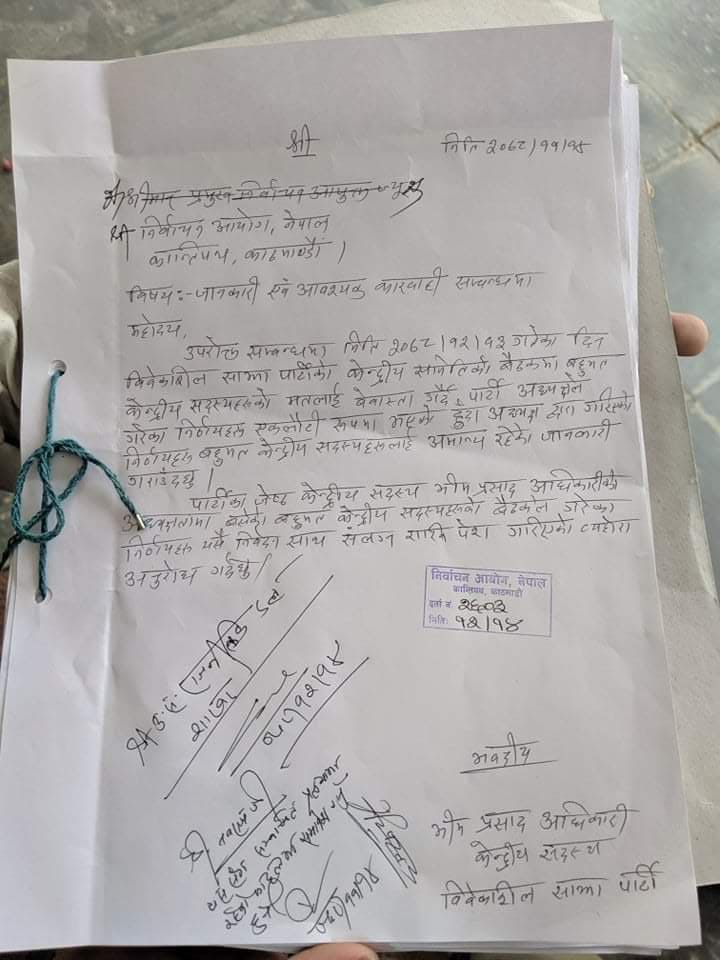 श्री
मिति २०७८/११/१४
श्रीमान प्रमुख निर्वाचन आयुक्त ज्यू
श्री निर्वाचन आयोग, नेपाल
कान्तिपथ, काठमाण्डौं ।
विषय :- जानकारी एवं आवश्यक कारवाही सम्बन्धमा
महोदय,
उपरोक्त सम्बन्धमा मिति २०७८/१२/१३ गतेका दिन
विवेकशिल साझा पार्टीको केन्द्रीय समितिको बैठकमा बहुमत
केन्द्रीय सदस्यहरुको मतलाई बेवास्ता गर्दै पार्टी अध्यक्षले
गरेका निर्णयहरु एकलौटी रूपमा भएको हुदा अध्यक्ष द्वारा गरिएको
निर्णयहरु बहुमत केन्द्रीय सदस्यहरुलाई अमान्य रहेको जानकारी
गराउदछु ।
पार्टीका जेष्ठ केन्द्रीय सदस्य भीम प्रसाद अधिकारीको
अध्यक्षतामा बसेको बहुमत केन्द्रीय सदस्यहरुको बैठकले गरेका
निर्णयहरु यसै निवेदन साथ संलग्न राखि पेश गरिएको व्यहोरा
अनुरोध गर्दछु ।
निर्वाचन आयोग, नेपाल
कान्तिपथ, काठमाडौं
दर्ता नं २६०३
मिति: १२/१४
श्री उ.स. राजनीतिक दल
शाखा
०७८/१२/१४
श्री
हुने
भवदीय
भीम प्रसाद अधिकारी
केन्द्रीय सदस्य
विवेकशिल साझा पार्टी